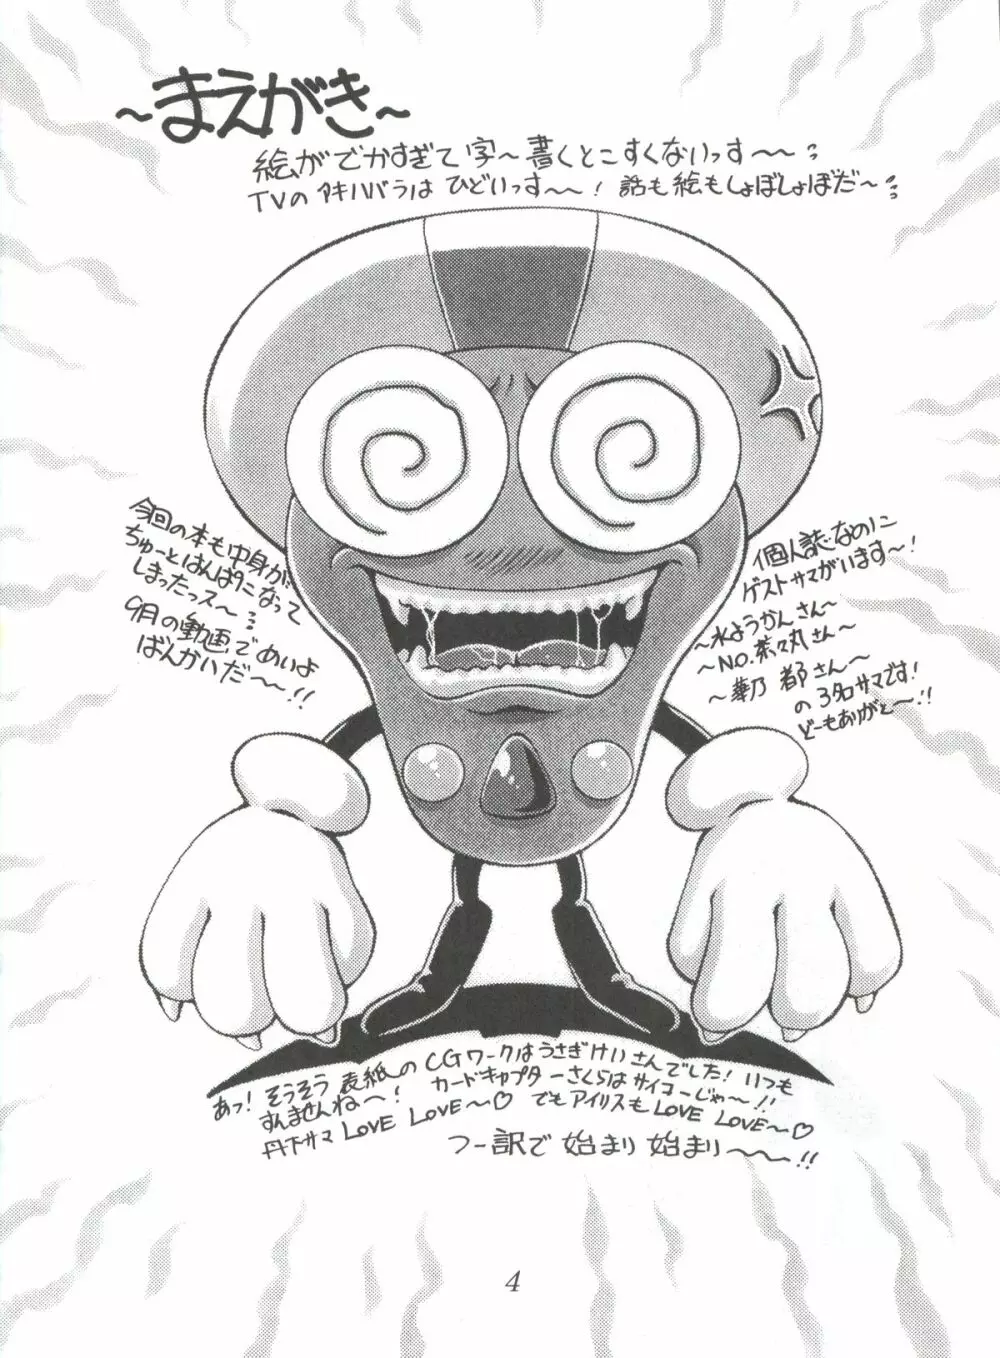 ～まえがき～
絵がでかすぎて字～書くとこすくないっす～～
TVのアキハバラはひどいっす～～！話も絵もしょぼしょぼだ～
今回の本も中身が
ちゅーとはんぱになって
しまったっス～
9月の動画でめいよ
ばんかいだ～～!!
個人誌なのに
ゲストサマがいます～！
～水ようかんさん～
～NO.茶々丸さん～
～華乃 都さん～
の3名サマです！
どーもありがと～!!
あっ！そうそう表紙のCGワークはうさぎけいさんでした！いつも
すんませんね～！カードキャプターさくらはサイコーじゃ～!!
丹下サマLOVE LOVE～♡ でもアイリスもLOVE LOVE～♡
つー訳で始まり始まり～～!!
4